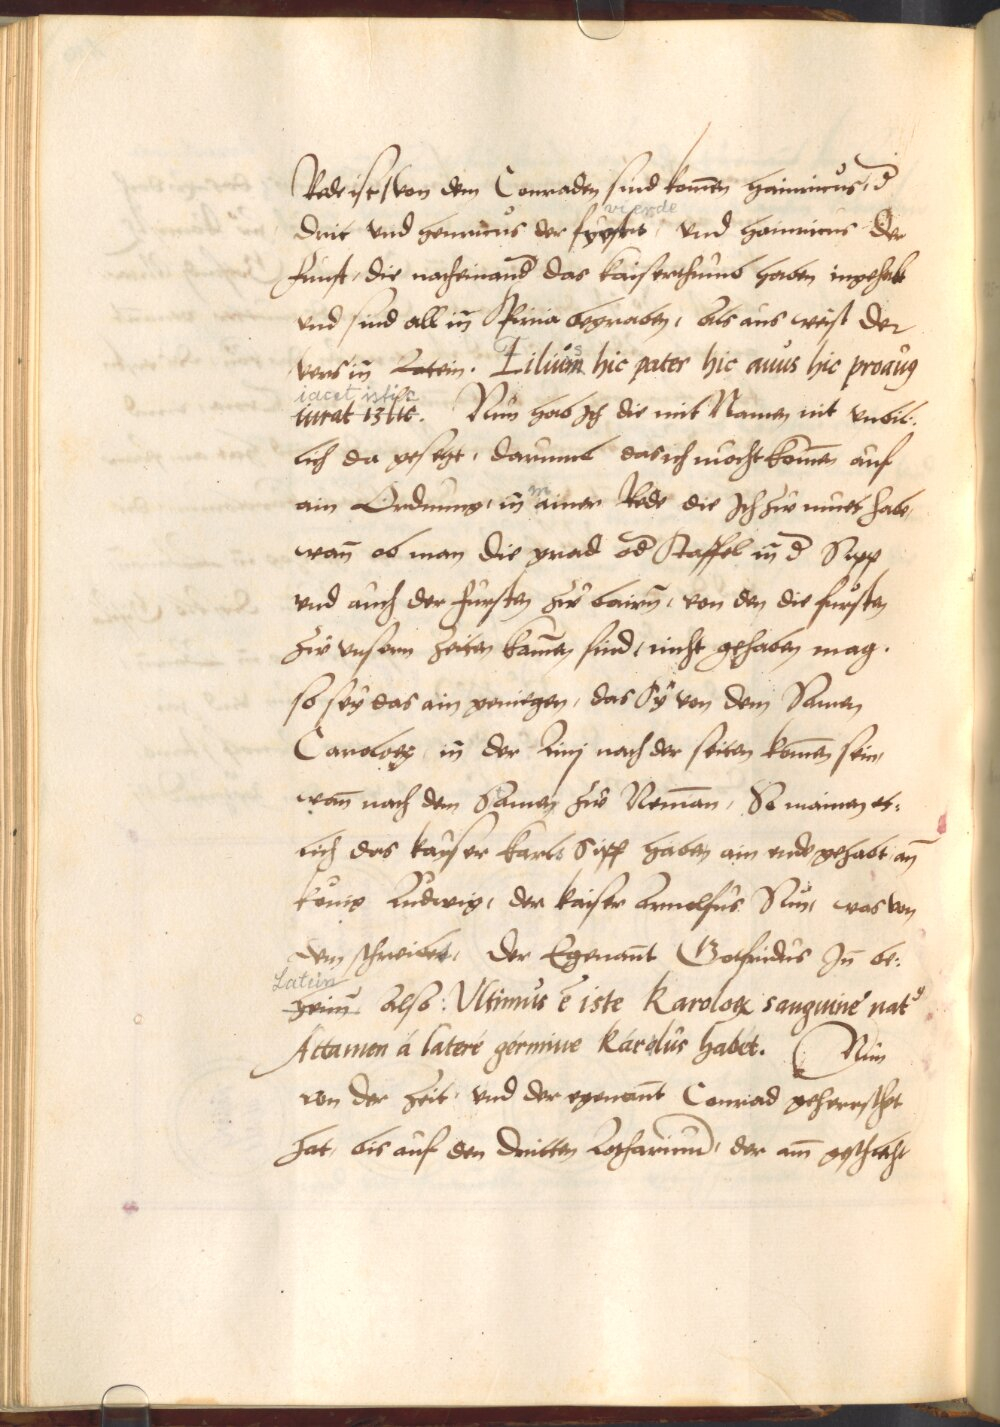 Rede ist / von dem Conraden sind komen hainricus, d
drit und henricus der vierde und hainricus der
funft, die nacheinand das kaiserthumb haben ingehabt
und sind all in Spiria begraben, als aus weist der
vers in Latein. Filius hic pater hic auus hic proaug
iacet istic. Nun hab Ich die mit Namen nit unbil:
lich da gesetzt, darumb das ich mocht komen auf
ain Ordnung, in mainer Rede die Ich fur mues habe,
wan ob man die grad od Staffel in d Sipp
und auch der fursten zu bairn, von den die fursten
zu unsern zeiten kamen sind, nicht gehaben mag.
so sey das ain geniegen, das Sy von dem Samen
in der Linj nach der seiten komen sein,
wan nach dem Samen zu Neman, So mainen et:
lich des kayser karls Sipp haben ain ende gehabt, an
kunig Ludwig, der kaiser Arnolfus Sun, was von
dem schreibet, der Egenant Gotfridus In
Latein also: Ultimus e iste Karoloru sanguine nat9
Attamen a latere germine karolus habet. Nun
von der zeit, und der egenant Conrad geherrschet
hat, bis auf den dritten Lotharium, der am geschlecht